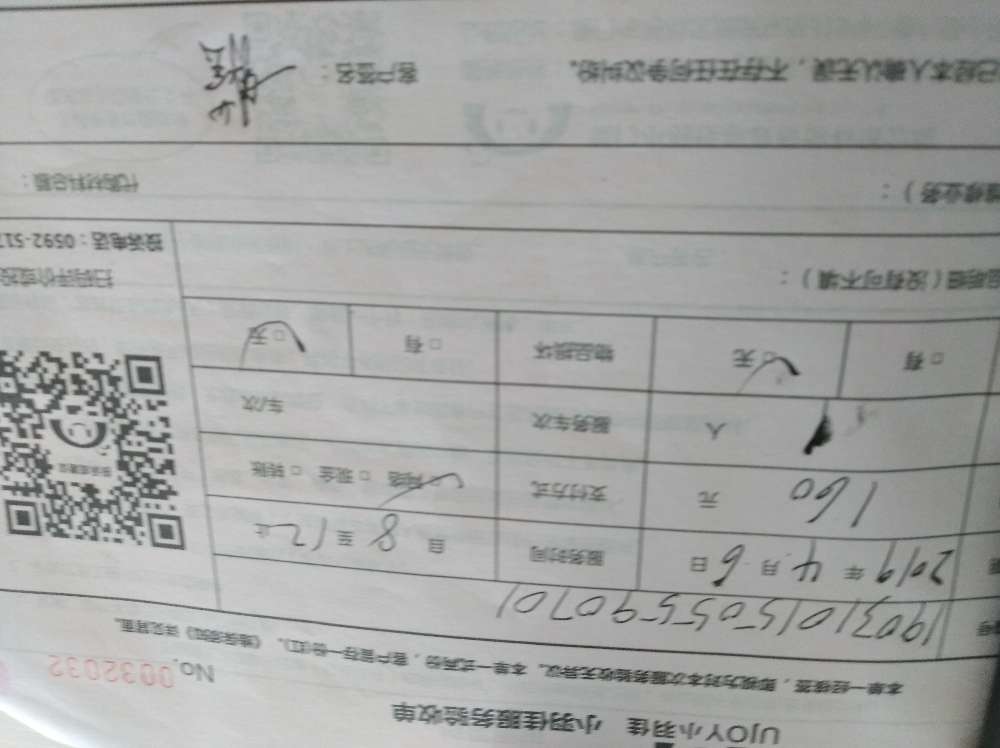 UJOY小羽佳 小羽佳服务验收单
No.0032032
本单一经接签，即视为对本次服务验收无异议。本单一式两份，客户留存一份(红)。《 》详见背面。
号 1903101505590701
2019年4月6日 服务时间 自8至12止
160元 支付方式 网络 □现金 □转账
人 服务车次 车/次
□有 □无 物品损坏 □有 □无
明细（没有可不填）： 扫码评价或投
投诉电话：0592-517
维修业务）： 代购材料总额：
已经本人确认无误，不存在任何争议纠纷。 客户签名：